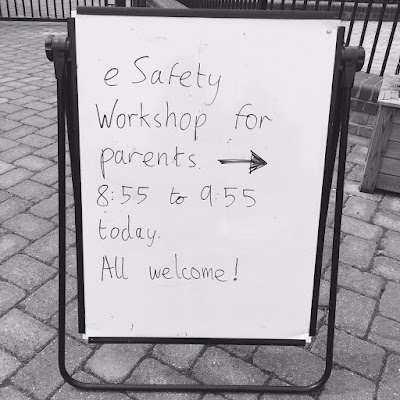 e Safety
Workshop for
parents →
8:55 to 9:55
today.
All welcome!